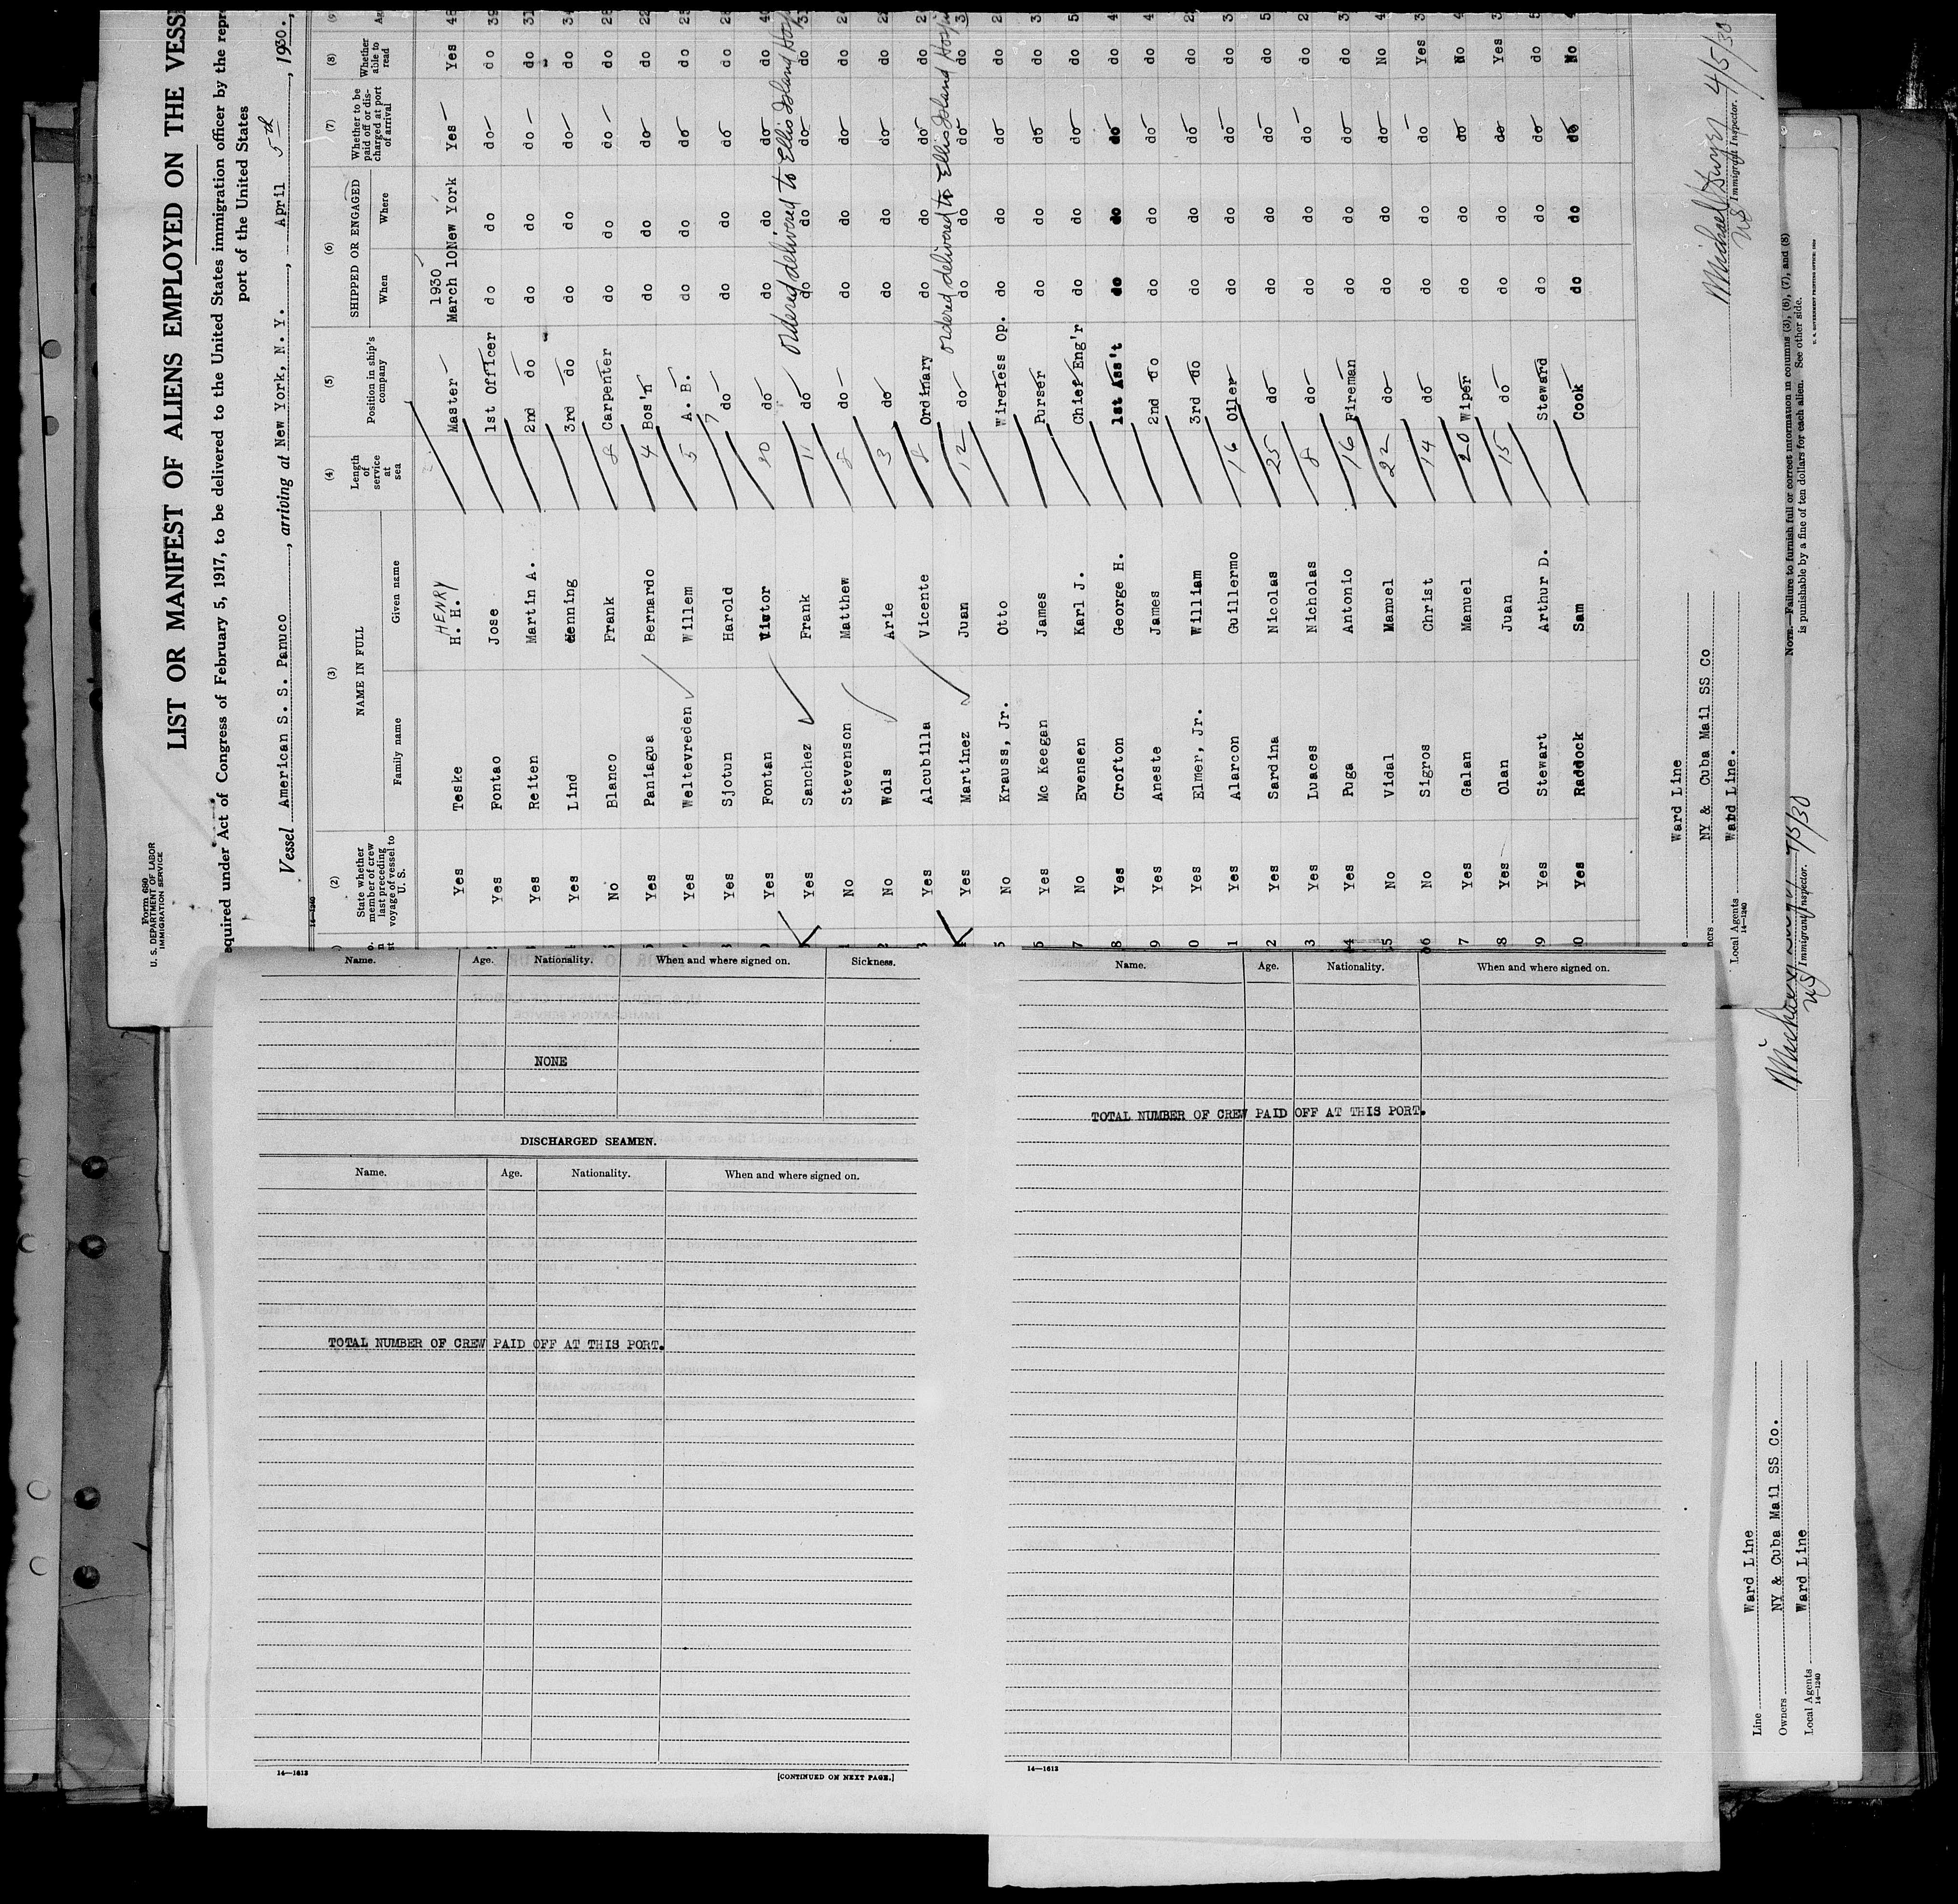 Form 680
U. S. DEPARTMENT OF LABOR
IMMIGRATION SERVICE
LIST OR MANIFEST OF ALIENS EMPLOYED ON THE
equired under Act of Congress of February 5, 1917, to be delivered to the United States immigration officer by the
port of the United States
Vessel American S. S. Panuco, arriving at New York, N. Y., April 5th, 1930.
14—1240
(2) (3) (4) (5) (6) (7) (8)
State whether member of crew last preceding voyage of vessel to U. S. NAME IN FULL Length of service at sea Position in ship's company SHIPPED OR ENGAGED Whether to be paid off or discharged at port of arrival Whether able to read
Family name Given name When Where
HENRY 1930
Yes Teske H. H. Master March 10 New York Yes Yes 48
Yes Fontao Jose 1st Officer do do do do 39
Yes Reiten Martin A. 2nd do do do do do 31
Yes Lind denning 3rd do do do do do
No Blanco Frank 8 Carpenter do do do do 28
Yes Paniagua Bernardo 4 Bos'n do do do do 22
Yes Weltevreden Willem 5 A. B. do do do do
Yes Sjotun Harold 7 do do do do do
Yes Fontan Victor 10 do do do do do
ordered delivered to Ellis Island
Yes Sanchez Frank 11 do do do do do
No Stevenson Matthew 8 do do do do do
No Wols Arie 3 do do do do do
Yes Alcubilla Vicente 8 Ordinary do do do do
ordered delivered to Ellis Island
Yes Martinez Juan 12 do do do do do
5 No Krauss, Jr. Otto Wireless Op. do do do do
6 Yes Mc Keegan James Purser do do do do
7 No Evensen Karl J. Chief Eng'r do do do do
8 Yes Crofton George H. 1st Ass't do do do do
9 Yes Aneste James 2nd do do do do do
0 Yes Elmer, Jr. William 3rd do do do do do
1 Yes Alarcon Guillermo 16 Oiler do do do do
2 Yes Sardina Nicolas 25 do do do do do
3 Yes Luaces Nicholas 8 do do do do do
4 Yes Puga Antonio 16 Fireman do do do do
5 No Vidal Manuel 22 do do do do No
6 No Sigros Christ 14 do do do do Yes
7 Yes Galan Manuel 20 Wiper do do do No
8 Yes Olan Juan 15 do do do do Yes
9 Yes Stewart Arthur D. Steward do do do do
0 Yes Raddock Sam Cook do do do No
Ward Line
NY & Cuba Mail SS Co
Local Agents Ward Line.
14—1240
4/5/30
US Immigrant Inspector.
NOTE.—Failure to furnish full or correct information in columns (3), (6), (7), and (8)
is punishable by a fine of ten dollars for each alien. See other side.
US Immigrant Inspector.
Line Ward Line
Owners NY & Cuba Mail SS Co.
Local Agents Ward Line
14—1240
Name. Age. Nationality. When and where signed on. Sickness.
NONE
DISCHARGED SEAMEN.
Name. Age. Nationality. When and where signed on.
TOTAL NUMBER OF CREW PAID OFF AT THIS PORT.
14—1613 [CONTINUED ON NEXT PAGE.]
Name. Age. Nationality. When and where signed on.
TOTAL NUMBER OF CREW PAID OFF AT THIS PORT.
14—1613